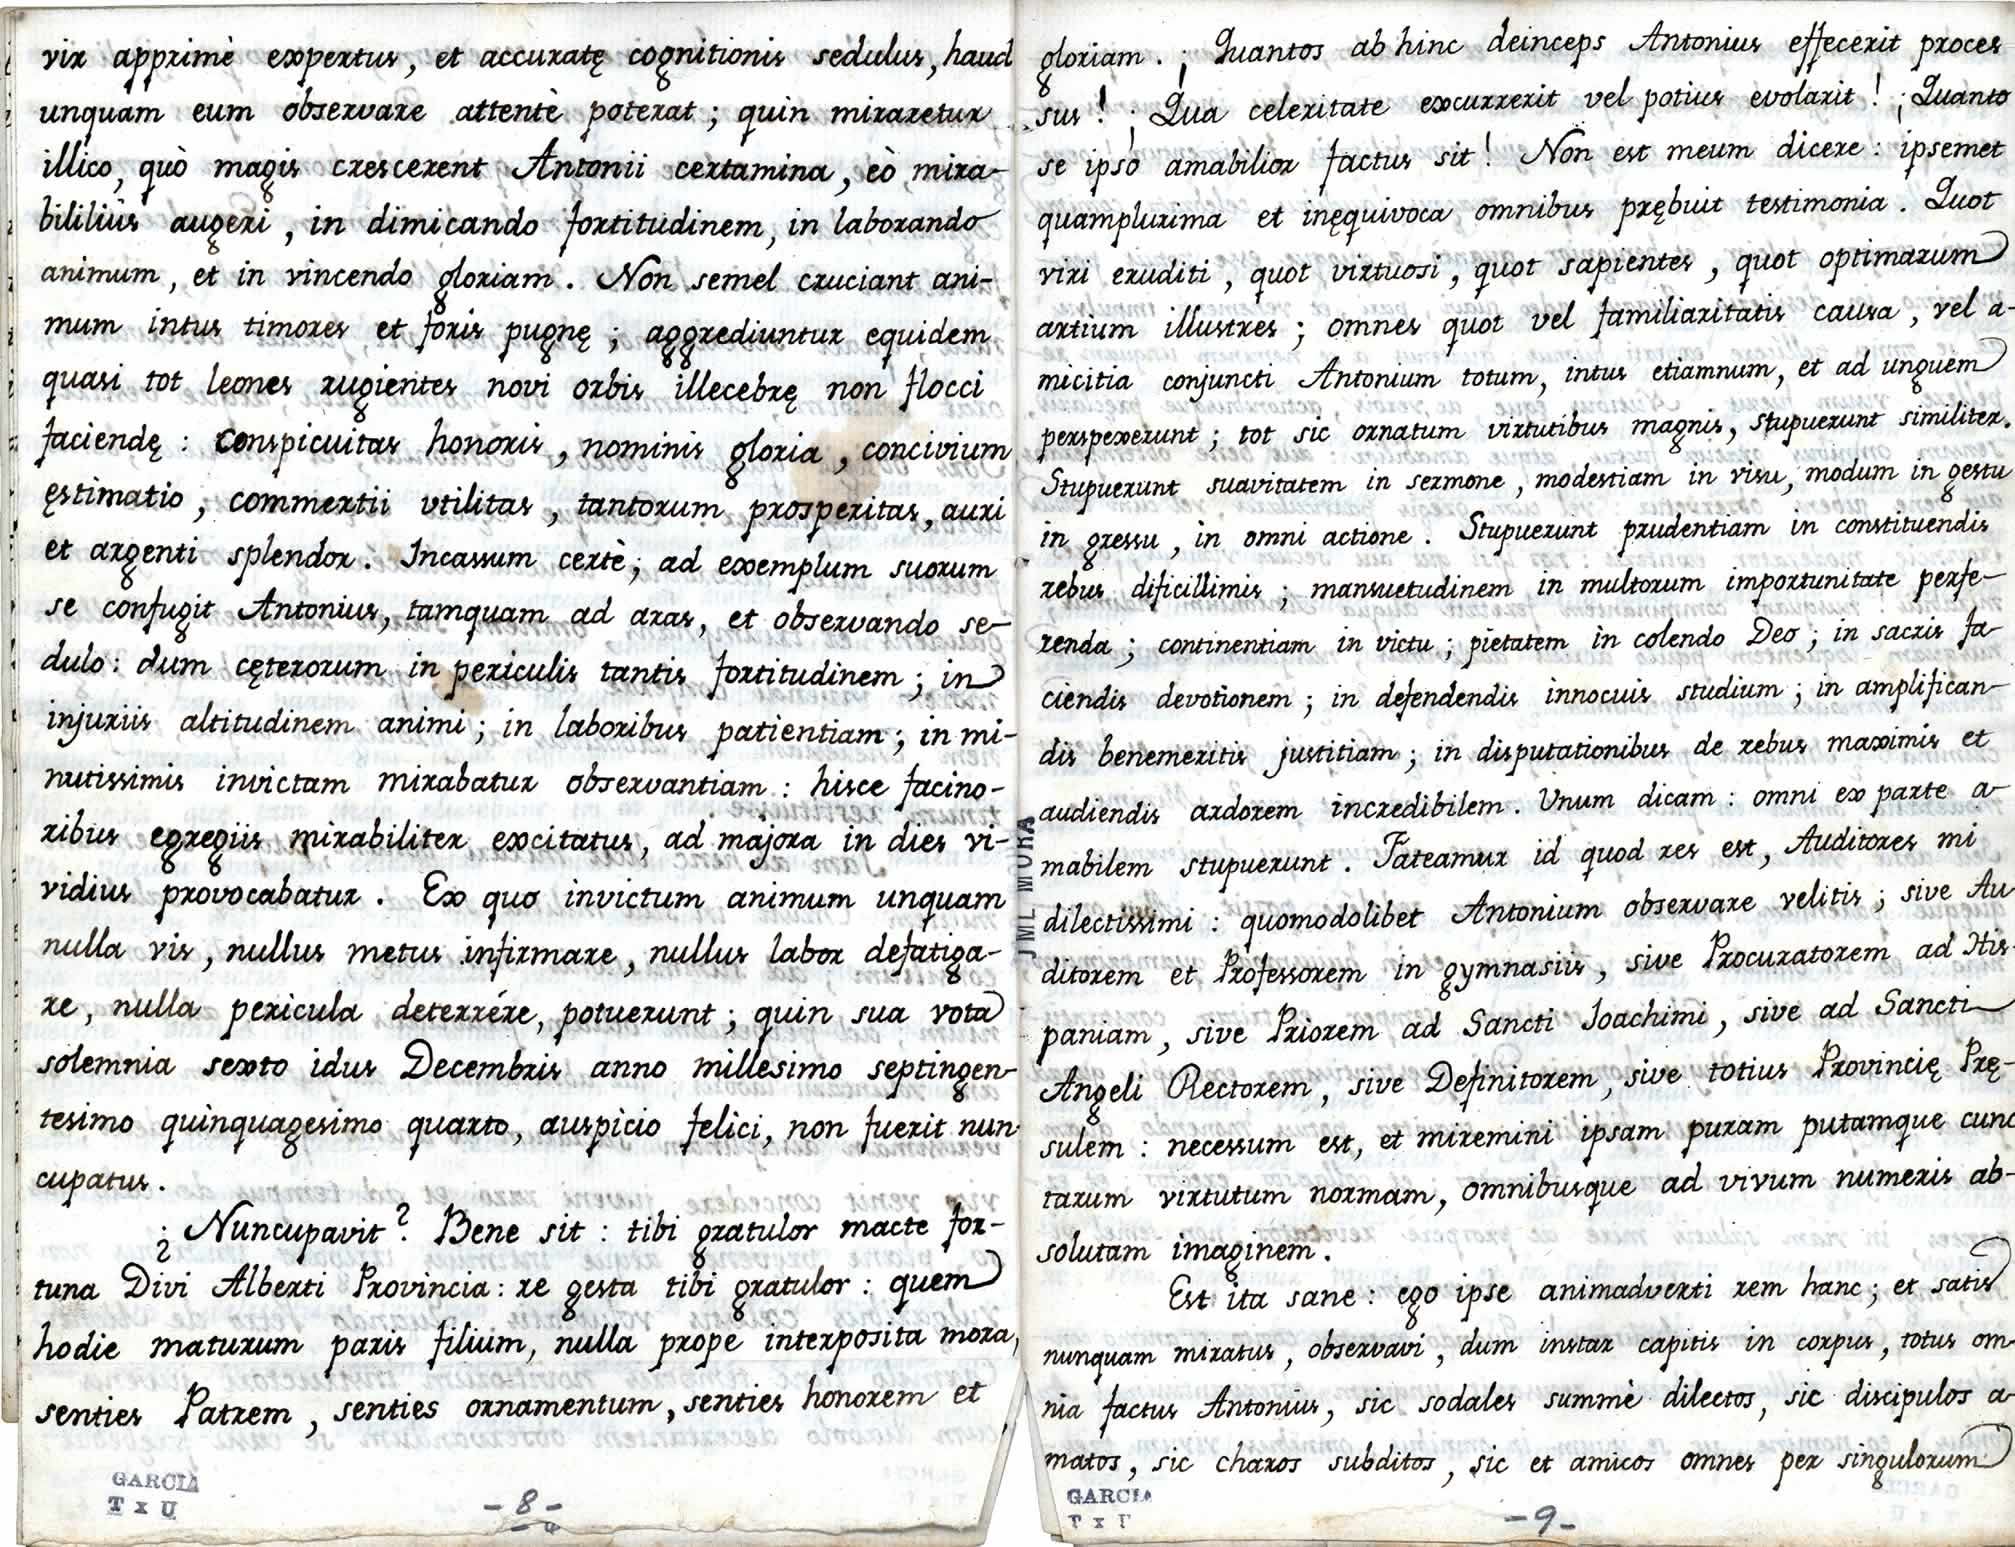 vir apprimè expertus, et accuratę cognitionis sedulus, haud
unquam eum observare attentè poterat; quin miraretur
illico, quò magis crescerent Antonii certamina, eò mira-
bililiùs augeri, in dimicando fortitudinem, in laborando
animum, et in vincendo gloriam. Non semel cruciant ani-
mum intus timores et foris pugnę; aggrediuntur equidem
quasi tot leones rugientes novi orbis illecebrę non flocci
faciendę: conspicuitas honoris, nominis gloria, concivium
ęstimatio, commertii vtilitas, tantorum prosperitas, auri
et argenti splendor. Incassum certè; ad exemplum suorum
se confugit Antonius, tamquam ad aras, et observando se-
dulo: dum cęterorum in periculis tantis fortitudinem; in
injuriis altitudinem animi; in laboribus patientiam; in mi-
nutissimis invictam mirabatur observantiam: hisce facino-
ribus egregiis mirabiliter excitatus, ad majora in dies vi-
vidius provocabatur. Ex quo invictum animum unquam
nulla vis, nullus metus infirmare, nullus labor defatiga-
re, nulla pericula deterrére, potuerunt; quin sua vota
solemnia sexto idus Decembris anno millesimo septingen-
tesimo quinquagesimo quarto, auspicio felici, non fuerit nun
cupatus.
¿Nuncupavit? Bene sit: tibi gratulor macte for-
tuna Divi Alberti Provincia: re gesta tibi gratulor: quem
hodie maturum paris filium, nulla prope interposita mora,
senties Patrem, senties ornamentum, senties honorem et
GARCIA
T x U
-8-
gloriam. ¡Quantos ab hinc deinceps Antonius effecerit proces
sus! ¡Qua celeritate excurrerit vel potius evolarit! ¡Quanto
se ipso amabilior factus sit! Non est meum dicere: ipsemet
quamplurima et inęquivoca omnibus prębuit testimonia. Quot
viri eruditi, quot virtuosi, quot sapientes, quot optimarum
artium illustres; omnes quot vel familiaritatis causa, vel a-
micitia conjuncti Antonium totum, intus etiamnum, et ad unguem
perspexerunt; tot sic ornatum virtutibus magnis, stupuerunt similiter.
Stupuerunt suavitatem in sermone, modestiam in visu, modum in gestu
in gressu, in omni actione. Stupuerunt prudentiam in constituendis
rebus dificillimis; mansuetudinem in multorum importunitate perfe-
renda; continentiam in victu; pietatem in colendo Deo; in sacris fa
ciendis devotionem; in defendendis innocuis studium; in amplifican-
dis benemeritis justitiam; in disputationibus de rebus maximis et
audiendis ardorem incredibilem. Unum dicam: omni ex parte a
mabilem stupuerunt. Fateamur id quod res est, Auditores mi
dilectissimi: quomodolibet Antonium observare velitis; sive Au
ditorem et Professorem in gymnasiis, sive Procuratorem ad His-
paniam, sive Priorem ad Sancti Joachimi, sive ad Sancti
Angeli Rectorem, sive Definitorem, sive totius Provincię Prę-
sulem: necessum est, et miremini ipsam puram putamque cunc
tarum virtutum normam, omnibusque ad vivum numeris ab-
solutam imaginem.
Est ita sane: ego ipse animadverti rem hanc; et satis
nunquam miratus, observavi, dum instar capitis in corpus, totus om-
nia factus Antonius, sic sodales summè dilectos, sic discipulos a
matos, sic charos subditos, sic et amicos omnes per singulorum
GARCIA
T x U
-9-
JML MORA